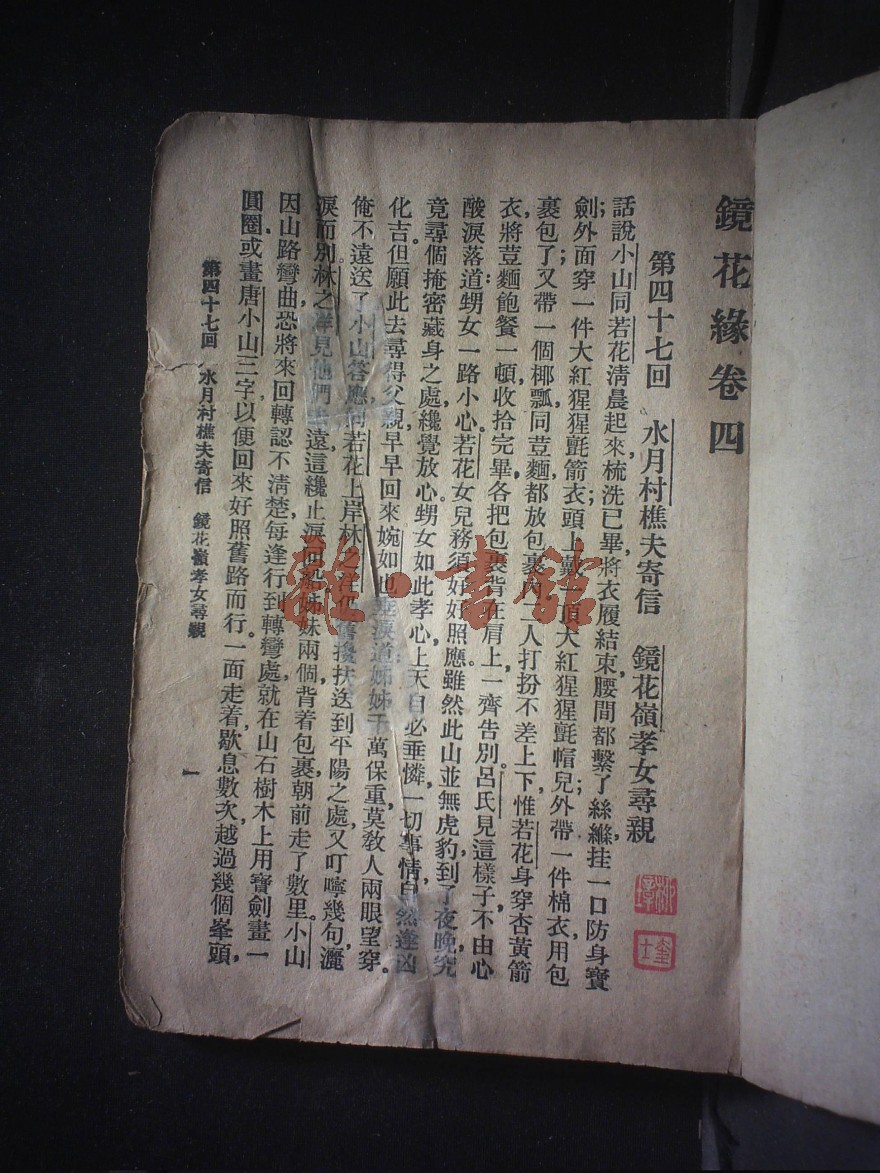 鏡花緣卷四
第四十七回　水月村樵夫寄信　鏡花嶺孝女尋親
話說小山同若花清晨起來，梳洗已畢，將衣履結束，腰間都繫了絲縧，挂一口防身寶
劍；外面穿一件大紅猩猩氈箭衣；頭上戴一頂大紅猩猩氈帽兒；外帶一件棉衣，用包
裹包了；又帶一個椰瓢同荳麵都放包裹內。二人打扮不差上下，惟若花身穿杏黃箭
衣。將荳麵飽餐一頓，收拾完畢，各把包裹背在肩上，一齊告別。呂氏見這樣子，不由心
酸淚落道：甥女一路小心，若花女兒務須好好照應。雖然此山並無虎豹，到了夜晚，究
竟尋個掩密藏身之處，纔覺放心。甥女如此孝心，上天自必垂憐，一切事情，自然逢凶
化吉。但願此去尋得父親，早早回來。婉如也垂淚道：姊姊千萬保重，莫教人兩眼望穿。
俺不遠送了。小山答應，同若花上岸。林之洋仍舊攙扶送到平陽之處，又叮嚀幾句，灑
淚而別。林之洋見他們去遠，這纔止淚回船。姊妹兩個背着包裹，朝前走了數里。小山
因山路彎曲，恐將來回轉認不清楚，每逢行到轉彎處，就在山石樹木上用寶劍畫一
圓圈，或畫唐小山三字，以便回來好照舊路而行。一面走着，歇息數次，越過幾個峯頭，
第四十七回　水月村樵夫寄信　鏡花嶺孝女尋親
一
雜·書館